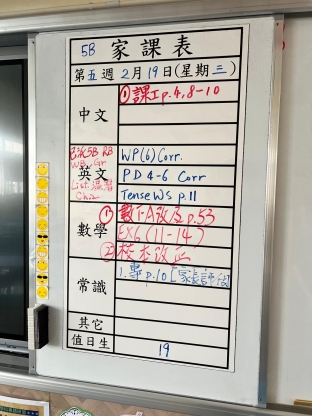 5B 家課表
第五週 2月19日(星期三)
中文
① 課工 p.4, 8-10
英文
WP(6) Corr.
PD 4-6 Corr
Tense WS p.11
數學
① 數下A改及 p.53
EX6 (11-14)
② 校本改正
常識
1. 專 p.10 [家長評
其它
值日生
19